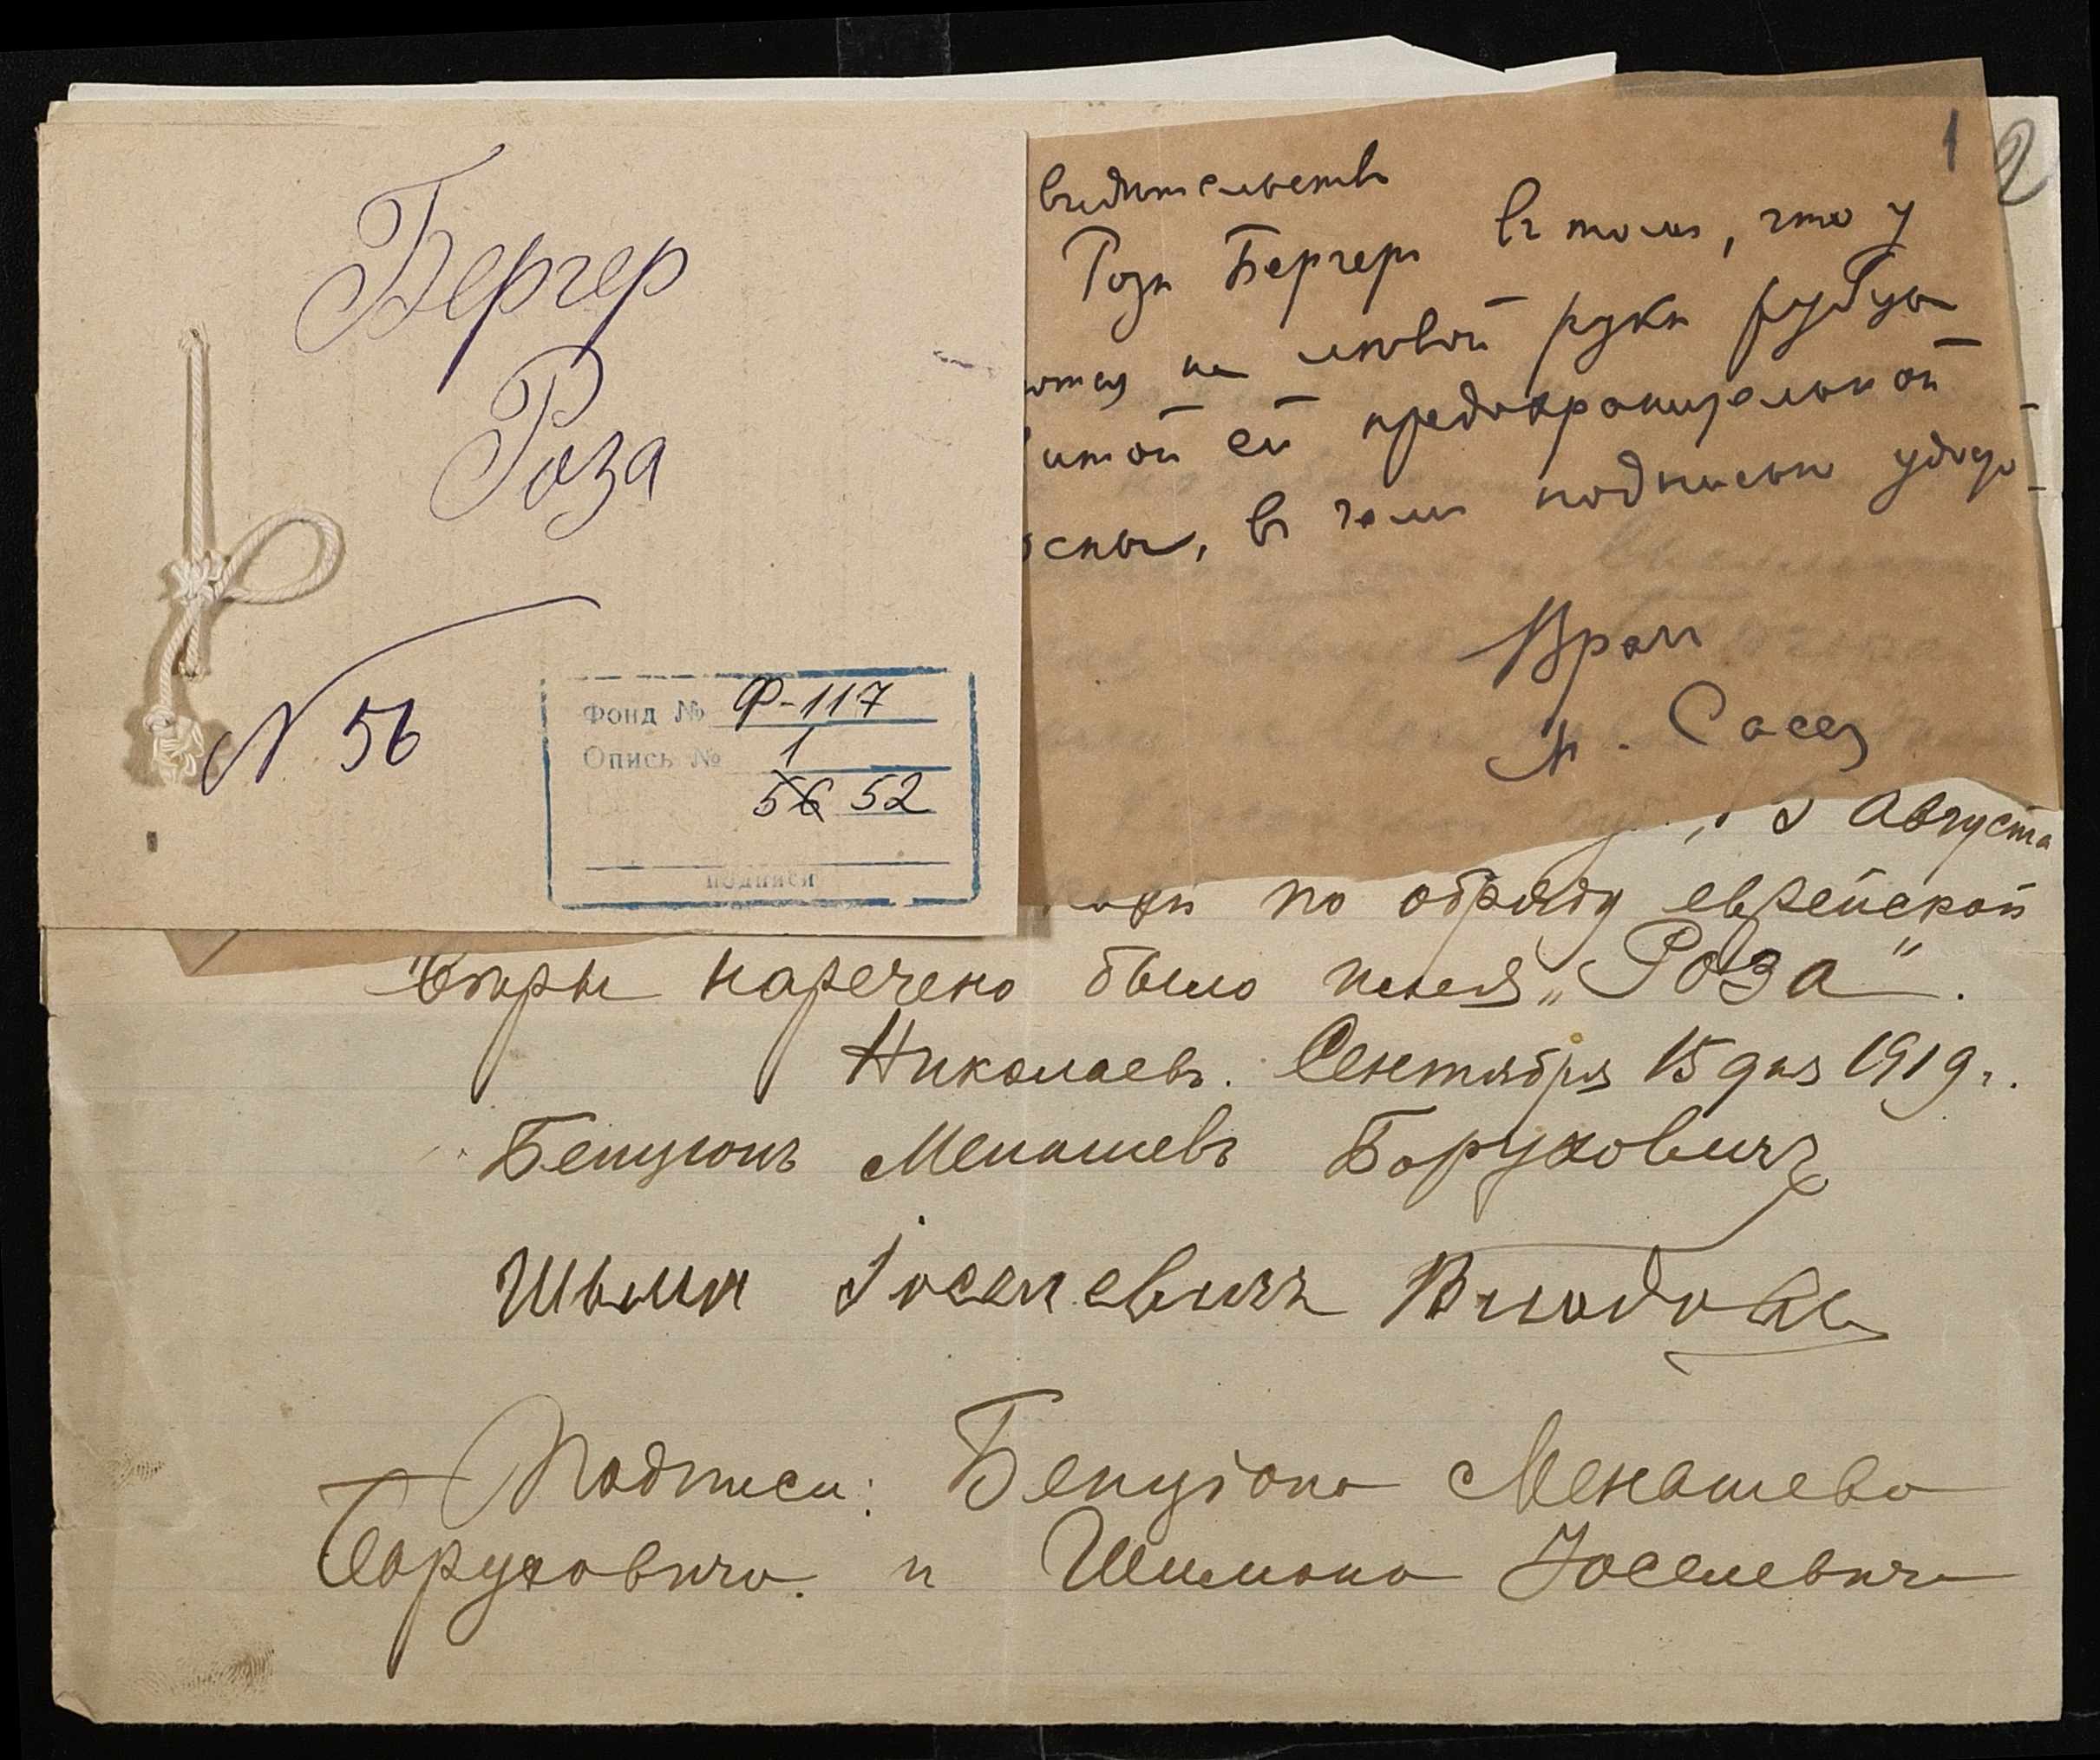 Бергер
Роза
N 56
Фонд № Ф-117
Опись № 1
56 52
подписи
1
2
видетельство
Розѣ Бергеръ въ томъ, что у
ются на лѣвой рукѣ рубцы
итой ей предохранительной
оспы, въ чемъ подписью удосто
Врачъ
5 Августа
по обряду еврейской
вѣры наречено было имя „Роза".
Николаевъ. Сентября 15 дня 1919 г.
Бенціонъ Менашевъ Боруховичъ
Шимонъ Іоселевичъ
Подписи: Бенціона Менашева
Боруховича и Шимона Іоселевича